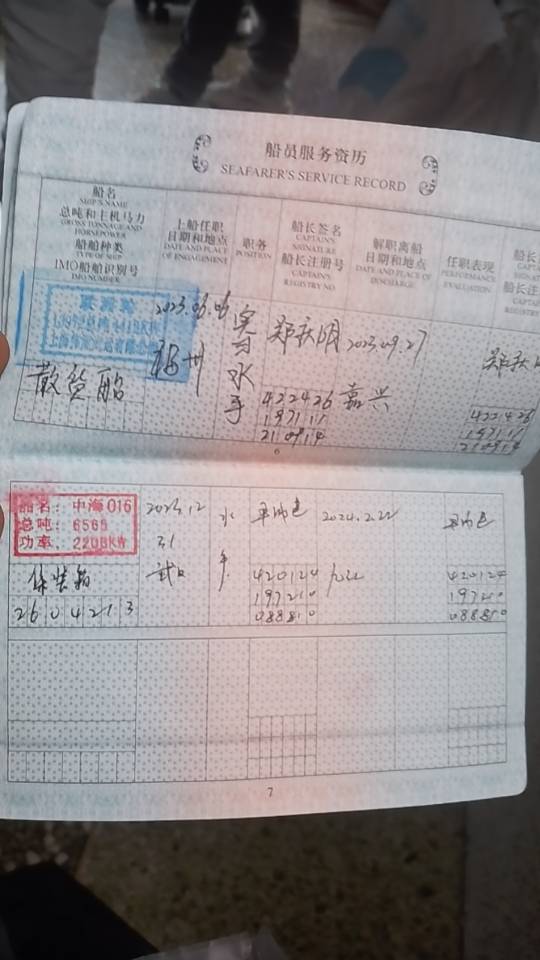 船员服务资历
SEAFARER'S SERVICE RECORD
船名
SHIP'S NAME
总吨和主机马力
GROSS TONNAGE AND
HORSEPOWER
船舶种类
TYPE OF SHIP
IMO船舶识别号
IMO NUMBER
上船任职
日期和地点
DATE AND PLACE
OF ENGAGEMENT
职务
POSITION
船长签名
CAPTAIN'S
SIGNATURE
船长注册号
CAPTAIN'S
REGISTRY NO
解职离船
日期和地点
DATE AND PLACE OF
DISCHARGE
任职表现
PERFORMANCE
EVALUATION
船长
船长注
REGISTRY
2023.06.06
实习水手
2023.09.27
散货船
422426
19711
210914
嘉兴
422426
19711
210914
6
船名: 中海016
总吨: 6565
功率: 2206KW
2604213
2023.12
31
水手
2024.2.22
420124
197210
088810
420124
197210
088810
7